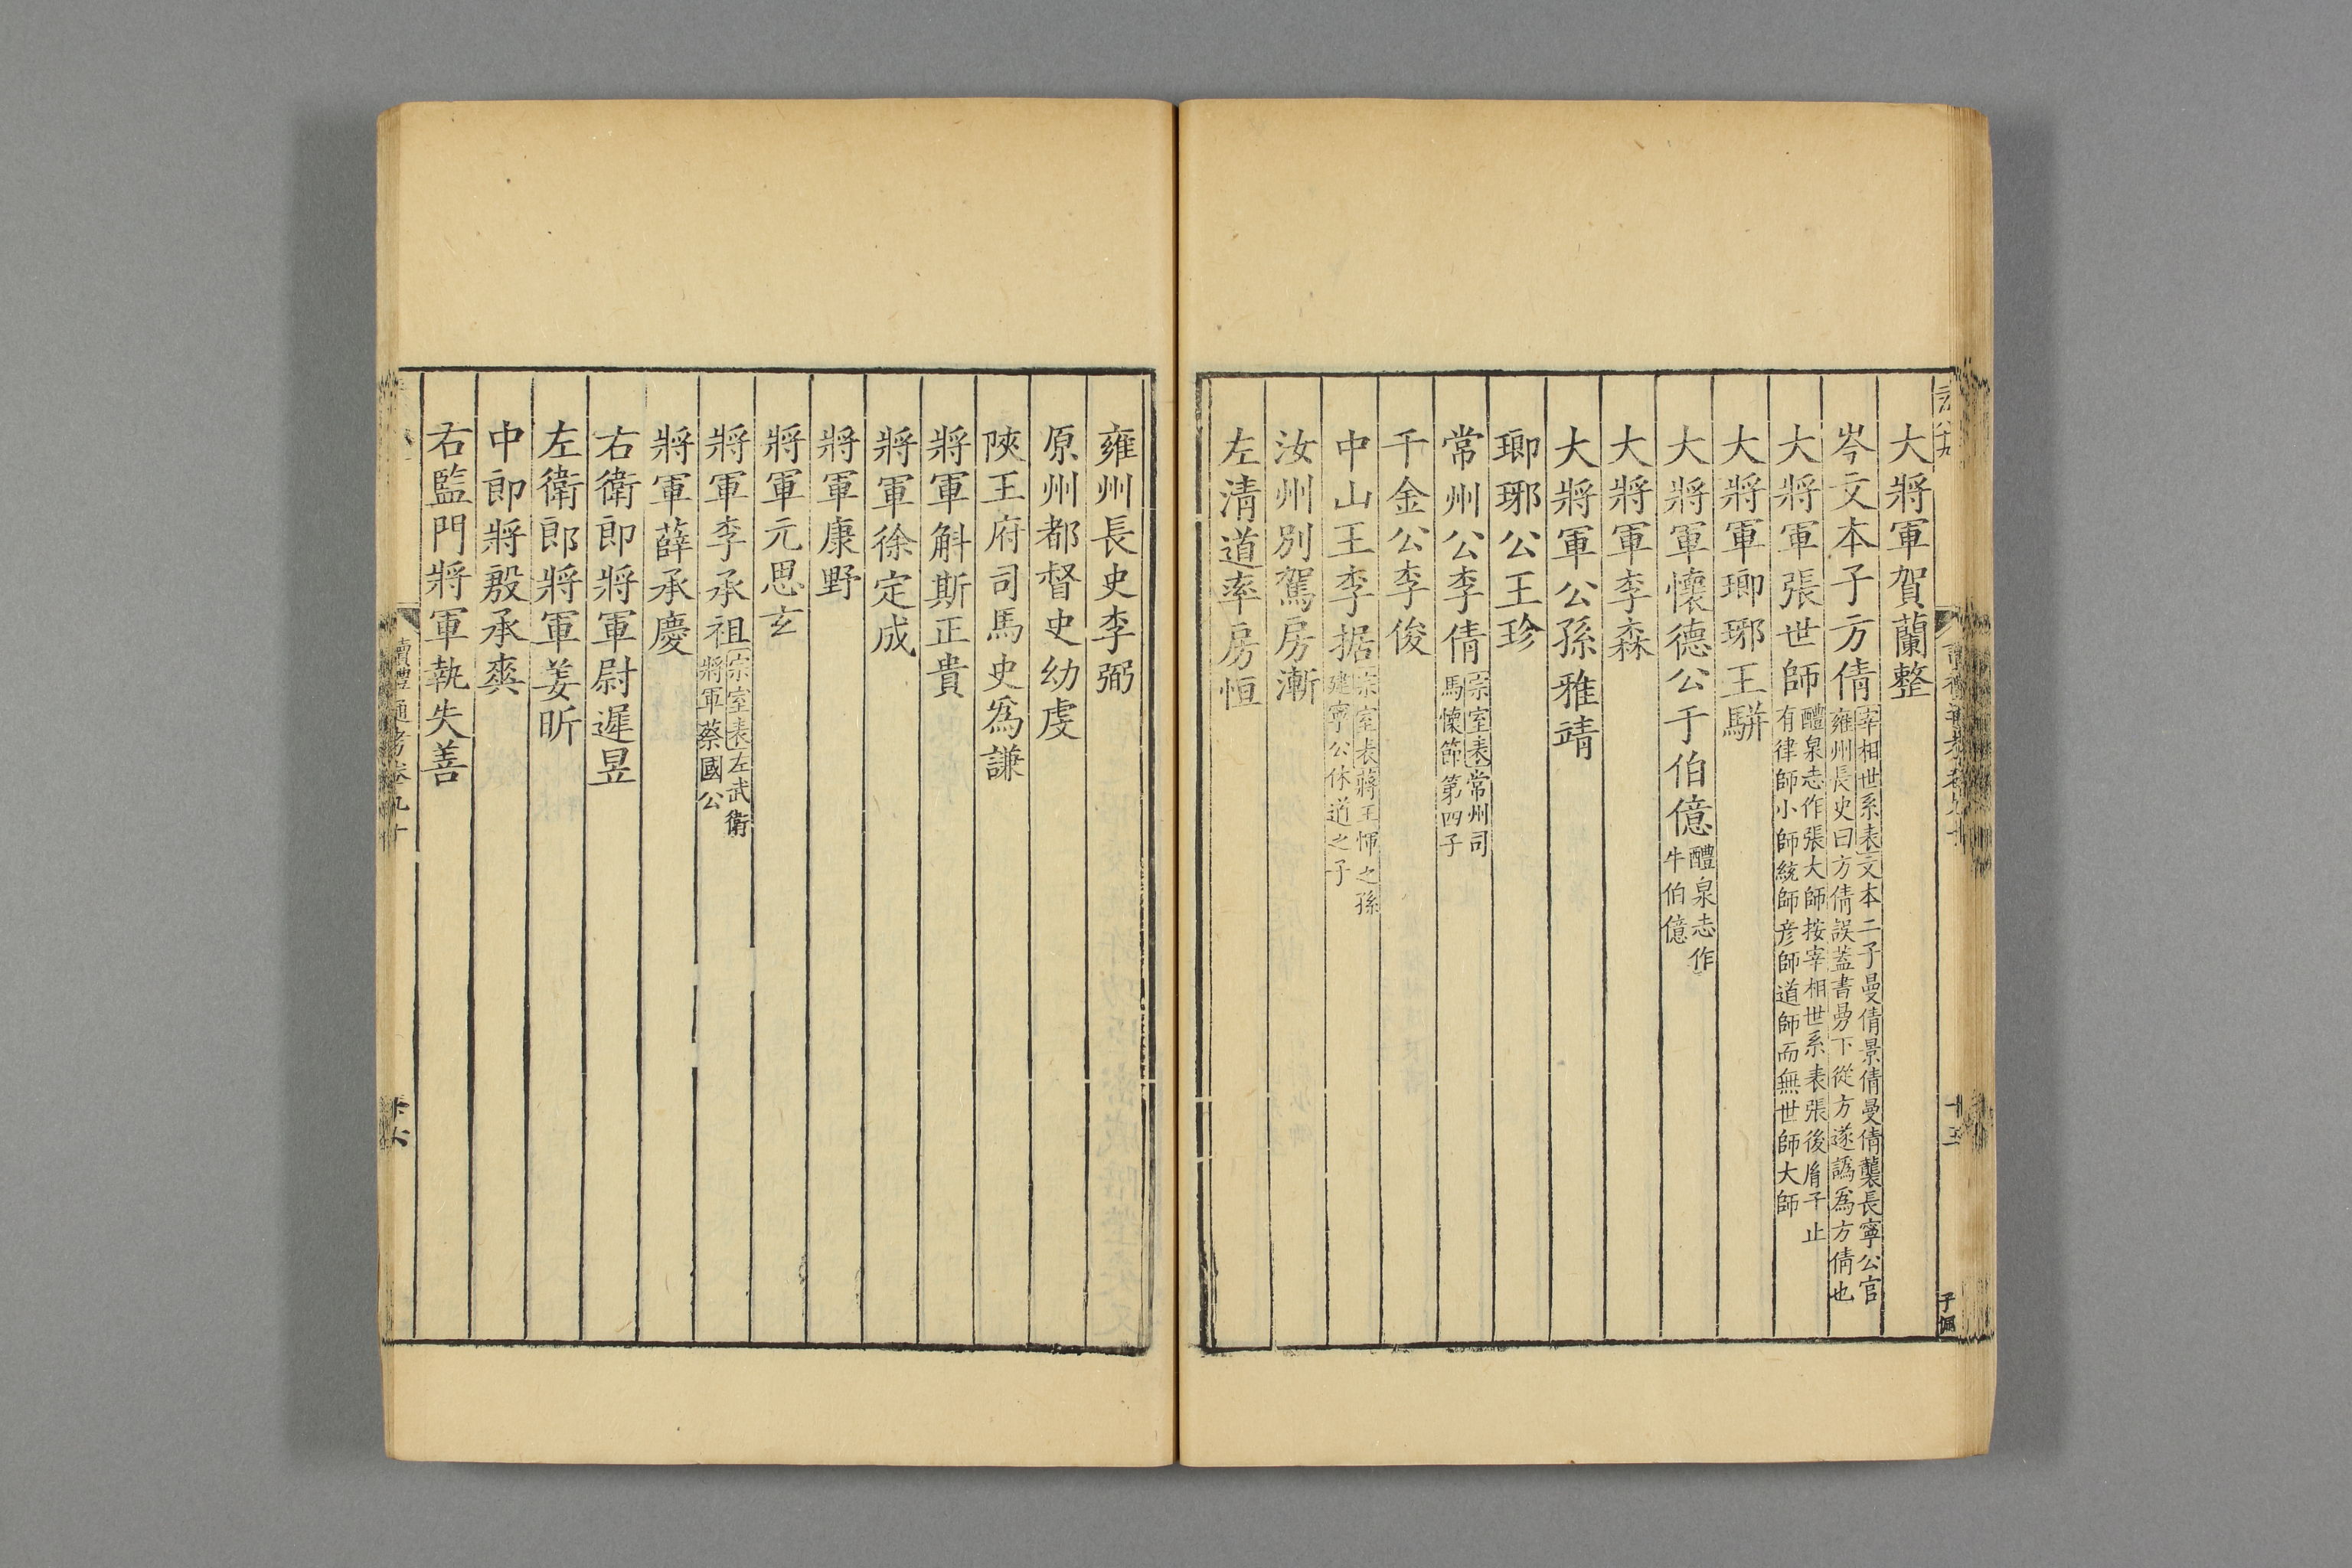 大將軍賀蘭整
岑文本子方倩宰相世系表文本二子曼倩景倩曼倩襲長寧公官雍州長史曰方倩誤蓋書曼下從方遂譌為方倩也
大將軍張世師醴泉志作張大師按宰相世系表張後胤子止有律師小師統師彥師道師而無世師大師
大將軍瑯琊王駢
大將軍懷德公于伯億醴泉志作牛伯億
大將軍李森
大將軍公孫雅靖
瑯琊公王珍
常州公李倩宗室表常州司馬懷節第四子
千金公李俊
中山王李据宗室表蔣王惲之孫建寧公休道之子
汝州別駕房漸
左清道率房恒
十五
子佩
雍州長史李弼
原州都督史幼虔
陝王府司馬史為謙
將軍斛斯正貴
將軍徐定成
將軍康野
將軍元思玄
將軍李承祖宗室表左武衛將軍蔡國公
將軍薛承慶
右衛郎將軍尉遲昱
左衛郎將軍姜昕
中郎將殷承爽
右監門將軍執失善
讀禮通考卷九十
十六